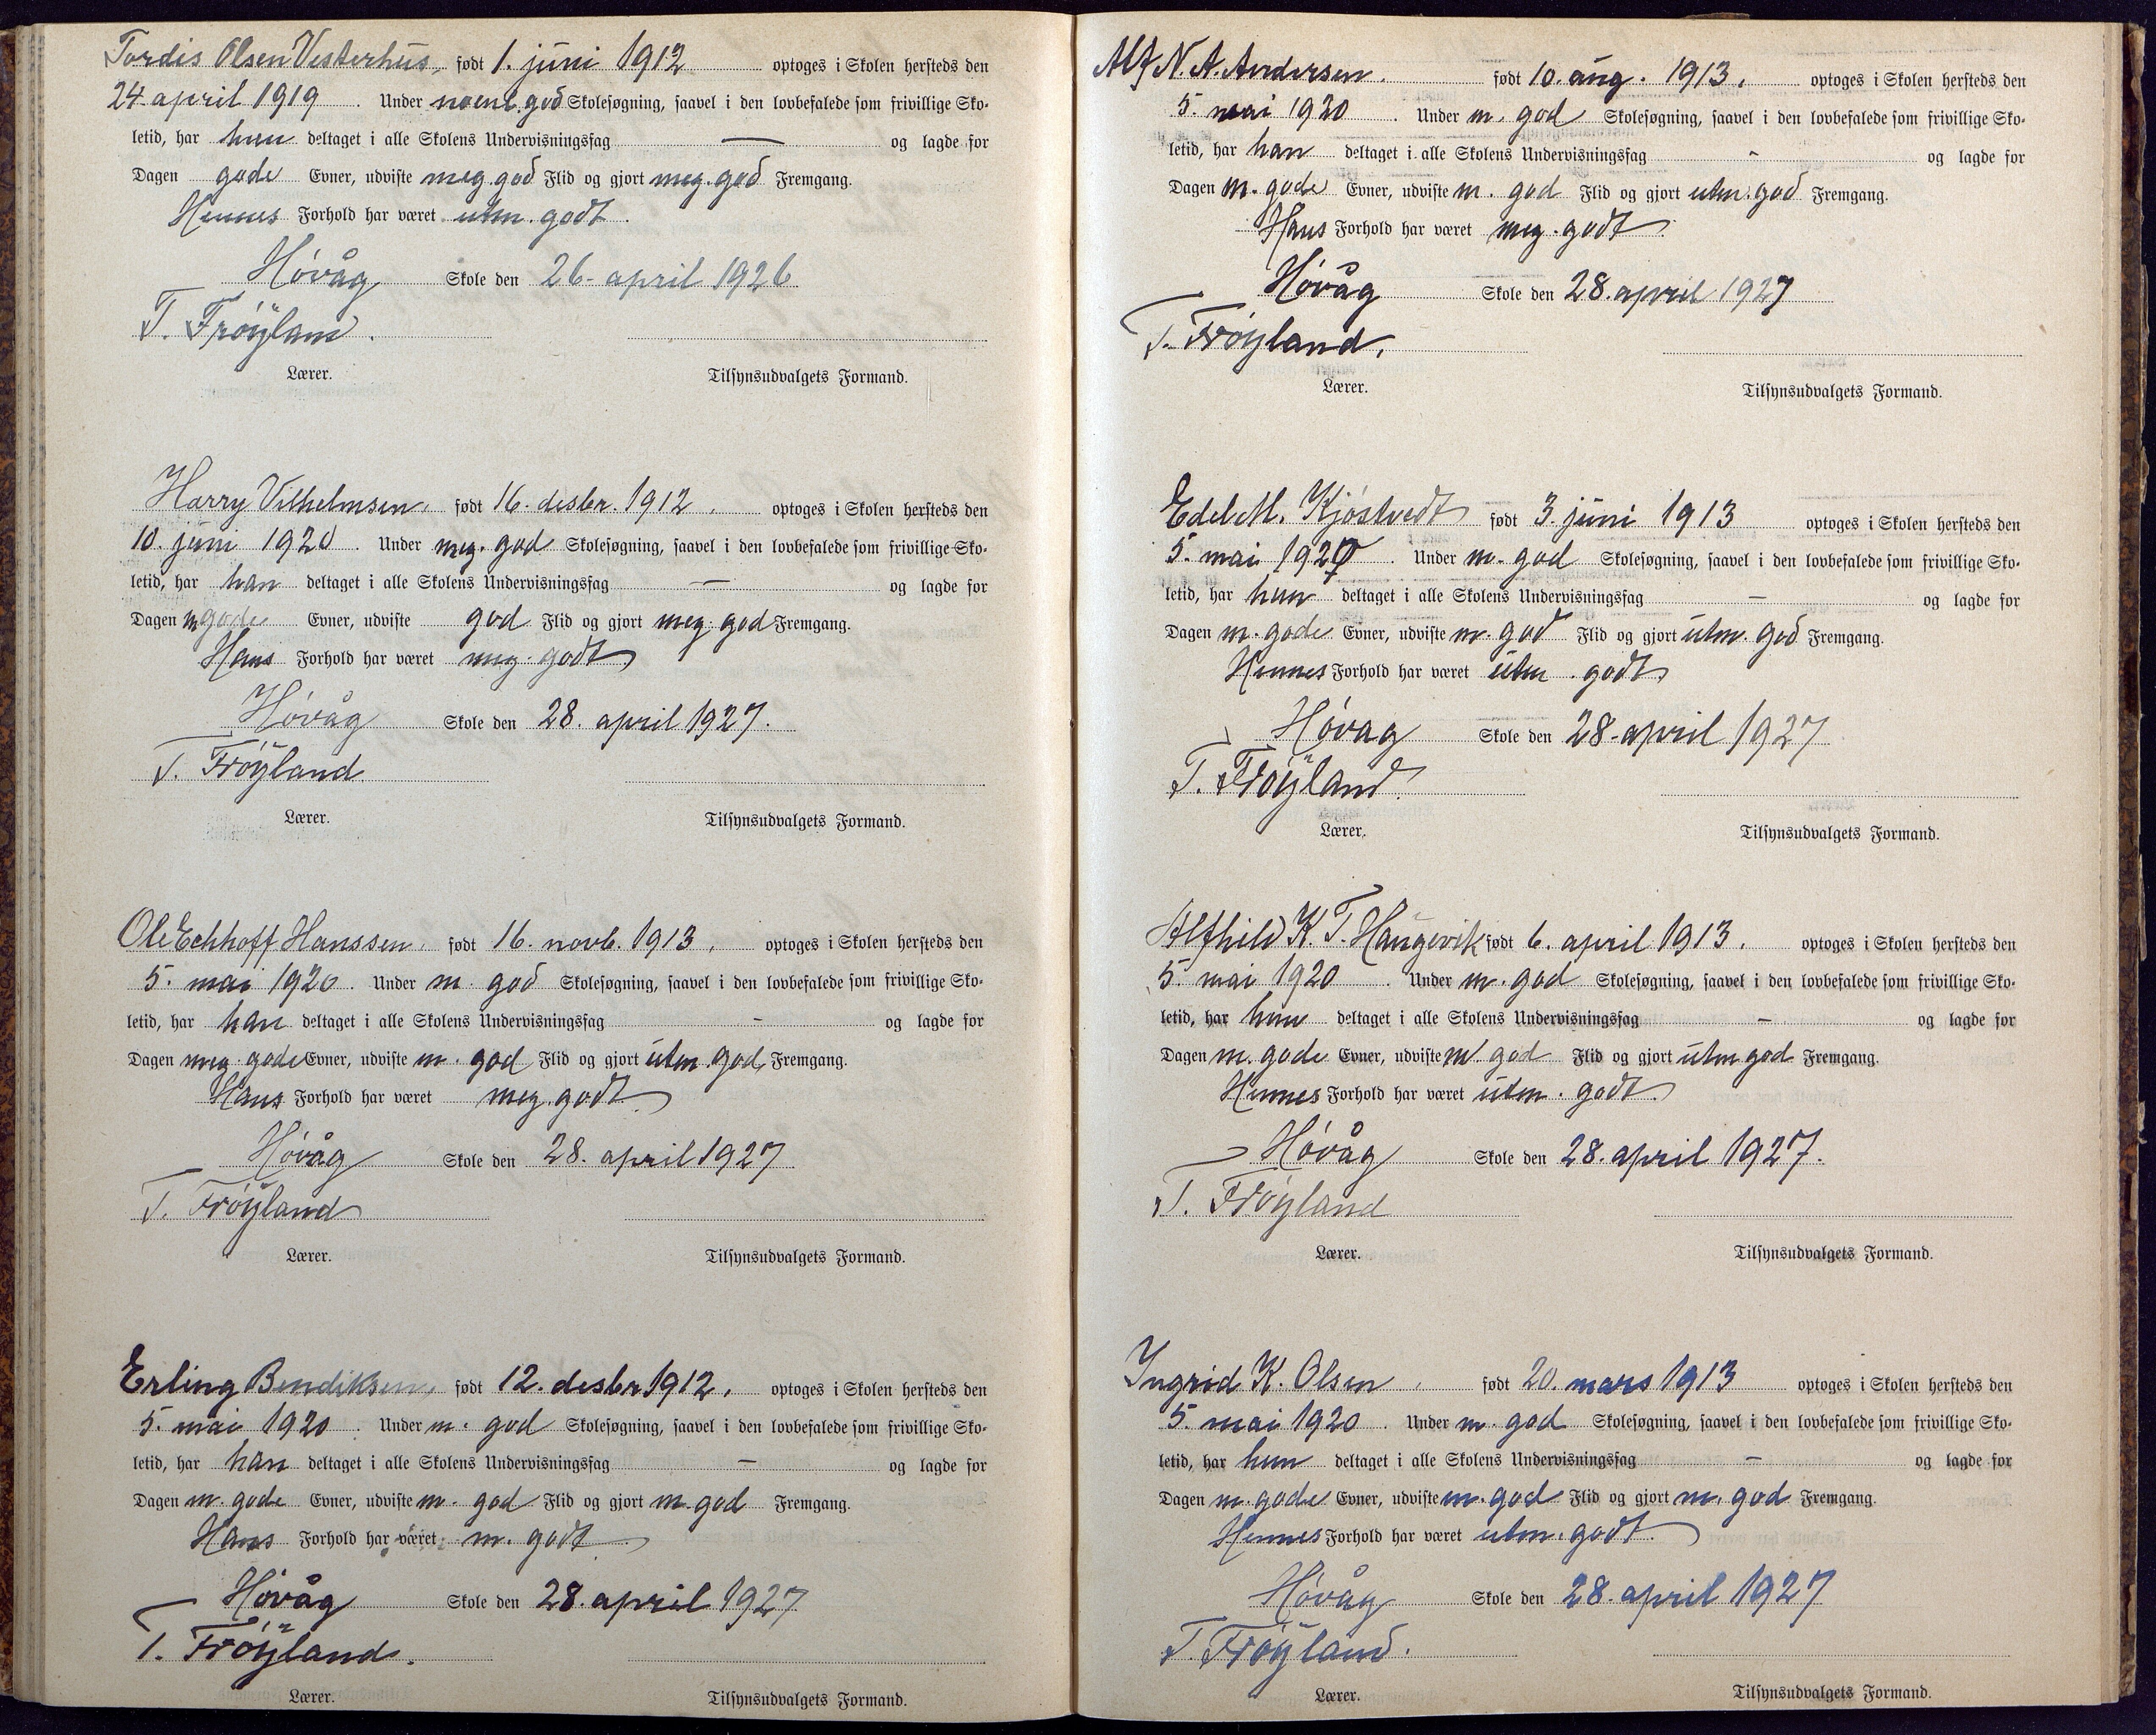 Tordis Olsen Vesterhus, født 1. juni 1912 optoges i Skolen hersteds den
24 april 1919. Under noenl. god Skolesøgning, saavel i den lovbefalede som frivillige Sko-
letid, har hun deltaget i alle Skolens Undervisningsfag — og lagde for
Dagen gode Evner, udviste meg. god Flid og gjort meg. god Fremgang.
Hennes Forhold har været utm. godt.
Høvåg Skole den 26. april 1926
T. Frøyland.
Lærer. Tilsynsudvalgets Formand.
Harry Vilhelmsen, født 16. desbr. 1912. optoges i Skolen hersteds den
10. juni 1920. Under meg. god Skolesøgning, saavel i den lovbefalede som frivillige Sko-
letid, har han deltaget i alle Skolens Undervisningsfag — og lagde for
Dagen m gode Evner, udviste god Flid og gjort meg. god Fremgang.
Hans Forhold har været meg. godt
Høvåg Skole den 28. april 1927.
T. Frøyland
Lærer. Tilsynsudvalgets Formand.
Ole Echhoff Hanssen, født 16. novb. 1913, optoges i Skolen hersteds den
5. mai 1920. Under m. god Skolesøgning, saavel i den lovbefalede som frivillige Sko-
letid, har han deltaget i alle Skolens Undervisningsfag - og lagde for
Dagen meg. gode Evner, udviste m. god Flid og gjort utm. god, Fremgang.
Hans Forhold har været meg. godt
Høvåg Skole den 28. april 1927
T. Frøyland
Lærer. Tilsynsudvalgets Formand.
Erling Bendiksen, født 12. desbr 1912, optoges i Skolen hersteds den
5. mai 1920. Under m. god Skolesøgning, saavel i den lovbefalede som frivillige Sko-
letid, har han deltaget i alle Skolens Undervisningsfag — og lagde for
Dagen m. gode Evner, udviste m. god Flid og gjort m. god Fremgang.
Hans Forhold har været m. godt
Høvåg Skole den 28. april 1927
T. Frøyland.
Lærer. Tilsynsudvalgets Formand.
Alf N. A. Andersen. født 10. aug. 1913. optoges i Skolen hersteds den
5. mai 1920. Under m. god Skolesøgning, saavel i den lovbefalede som frivillige Sko-
letid, har han deltaget i alle Skolens Undervisningsfag - og lagde for
Dagen m. gode Evner, udviste m. god Flid og gjort utm. god Fremgang.
Hans Forhold har været meg. godt.
Høvåg Skole den 28. april 1927
T. Frøyland.
Lærer. Tilsynsudvalgets Formand.
Edel M. Kjøstvedt født 3. juni 1913 optoges i Skolen hersteds den
5. mai 1920. Under m. god Skolesøgning, saavel i den lovbefalede som frivillige Sko-
letid, har hun deltaget i alle Skolens Undervisningsfag — og lagde for
Dagen m. gode Evner, udviste m. god Flid og gjort utm. god Fremgang.
Hennes Forhold har været utm. godt
Høvag Skole den 28. april 1927
T. Frøyland.
Lærer. Tilsynsudvalgets Formand.
Alfhild K. T. Haugevik født 6. april 1913. optoges i Skolen hersteds den
5. mai 1920. Under m. god Skolesøgning, saavel i den lovbefalede som frivillige Sko-
letid, har hun deltaget i alle Skolens Undervisningsfag — og lagde for
Dagen m. gode Evner, udviste m god Flid og gjort utm god Fremgang.
Hennes Forhold har været utm. godt.
Høvåg Skole den 28. april 1927.
T. Frøyland
Lærer. Tilsynsudvalgets Formand.
Ingrid K. Olsen, født 20. mars 1913 optoges i Skolen hersteds den
5. mai 1920. Under m. god Skolesøgning, saavel i den lovbefalede som frivillige Sko-
letid, har hun deltaget i alle Skolens Undervisningsfag — og lagde for
Dagen m. gode Evner, udviste m. god Flid og gjort m. god Fremgang.
Hennes Forhold har været utm. godt.
Høvåg Skole den 28. april 1927
T. Frøyland.
Lærer. Tilsynsudvalgets Formand.